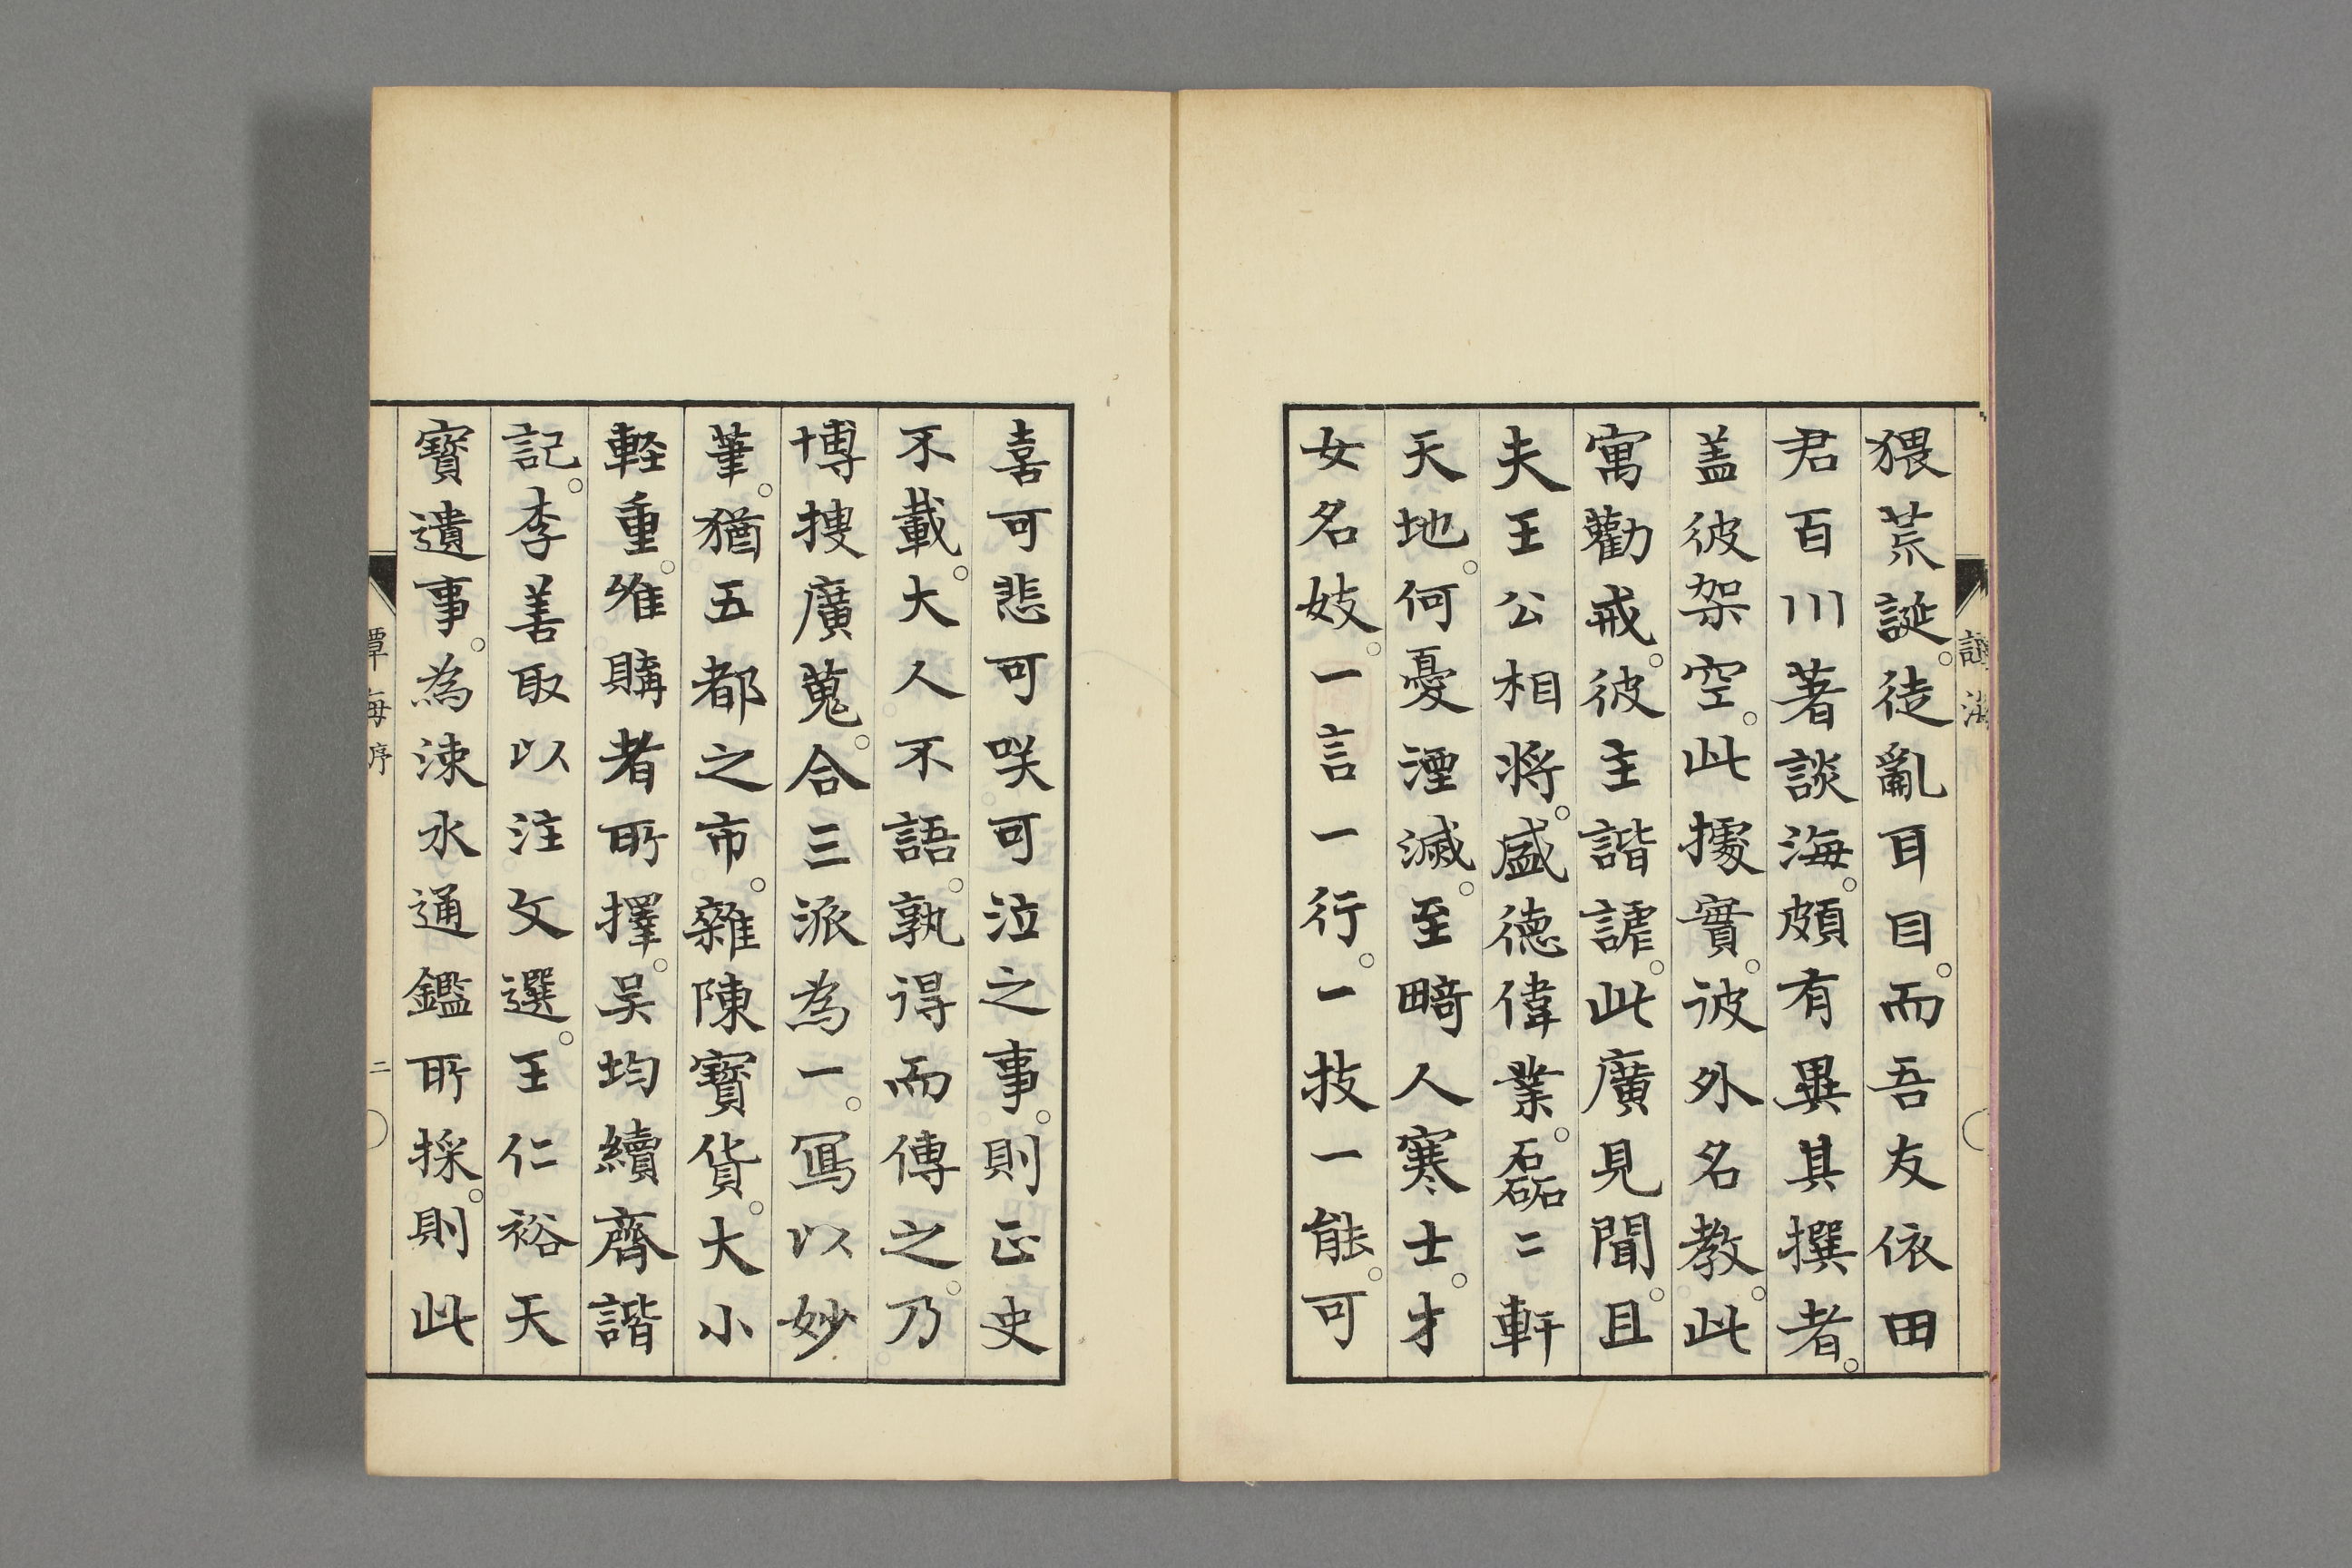 猥荒誕。徒亂耳目。而吾友依田
君百川著談海。頗有異其撰者。
盖彼架空。此據實。彼外名教。此
寓勸戒。彼主諧謔。此廣見聞。且
夫王公相將。盛德偉業。磊〻軒
天地。何憂湮滅。至畸人寒士。才
女名妓。一言一行。一技一能。可
喜可悲可咲可泣之事。則正史
不載。大人不語。孰得而傳之。乃
博搜廣蒐。合三派為一。寫以妙
筆。猶五都之市。雜陳寶貨。大小
軽重。唯購者所擇。吴均續齊諧
記。李善取以注文選。王仁裕天
寶遺事。為涑水通鑑所採。則此
譚海序
二